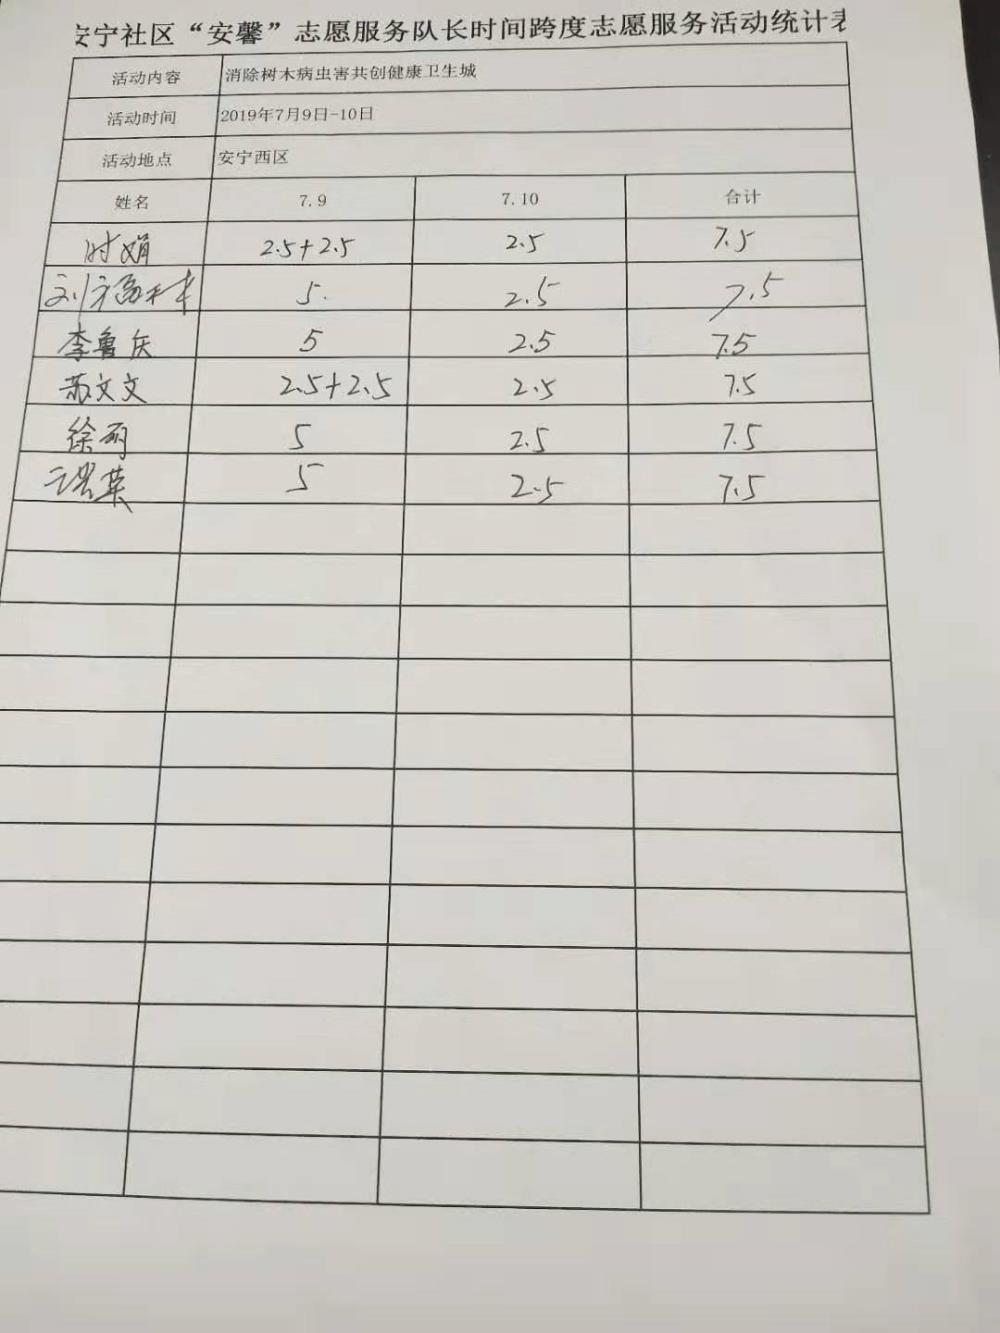 安宁社区“安馨”志愿服务队长时间跨度志愿服务活动统计表
活动内容 消除树木病虫害共创健康卫生城
活动时间 2019年7月9日-10日
活动地点 安宁西区
姓名 7.9 7.10 合计
时娟 2.5+2.5 2.5 7.5
刘 5. 2.5 7.5
李鲁庆 5 2.5 7.5
苏文文 2.5+2.5 2.5 7.5
徐丽 5 2.5 7.5
5 2.5 7.5